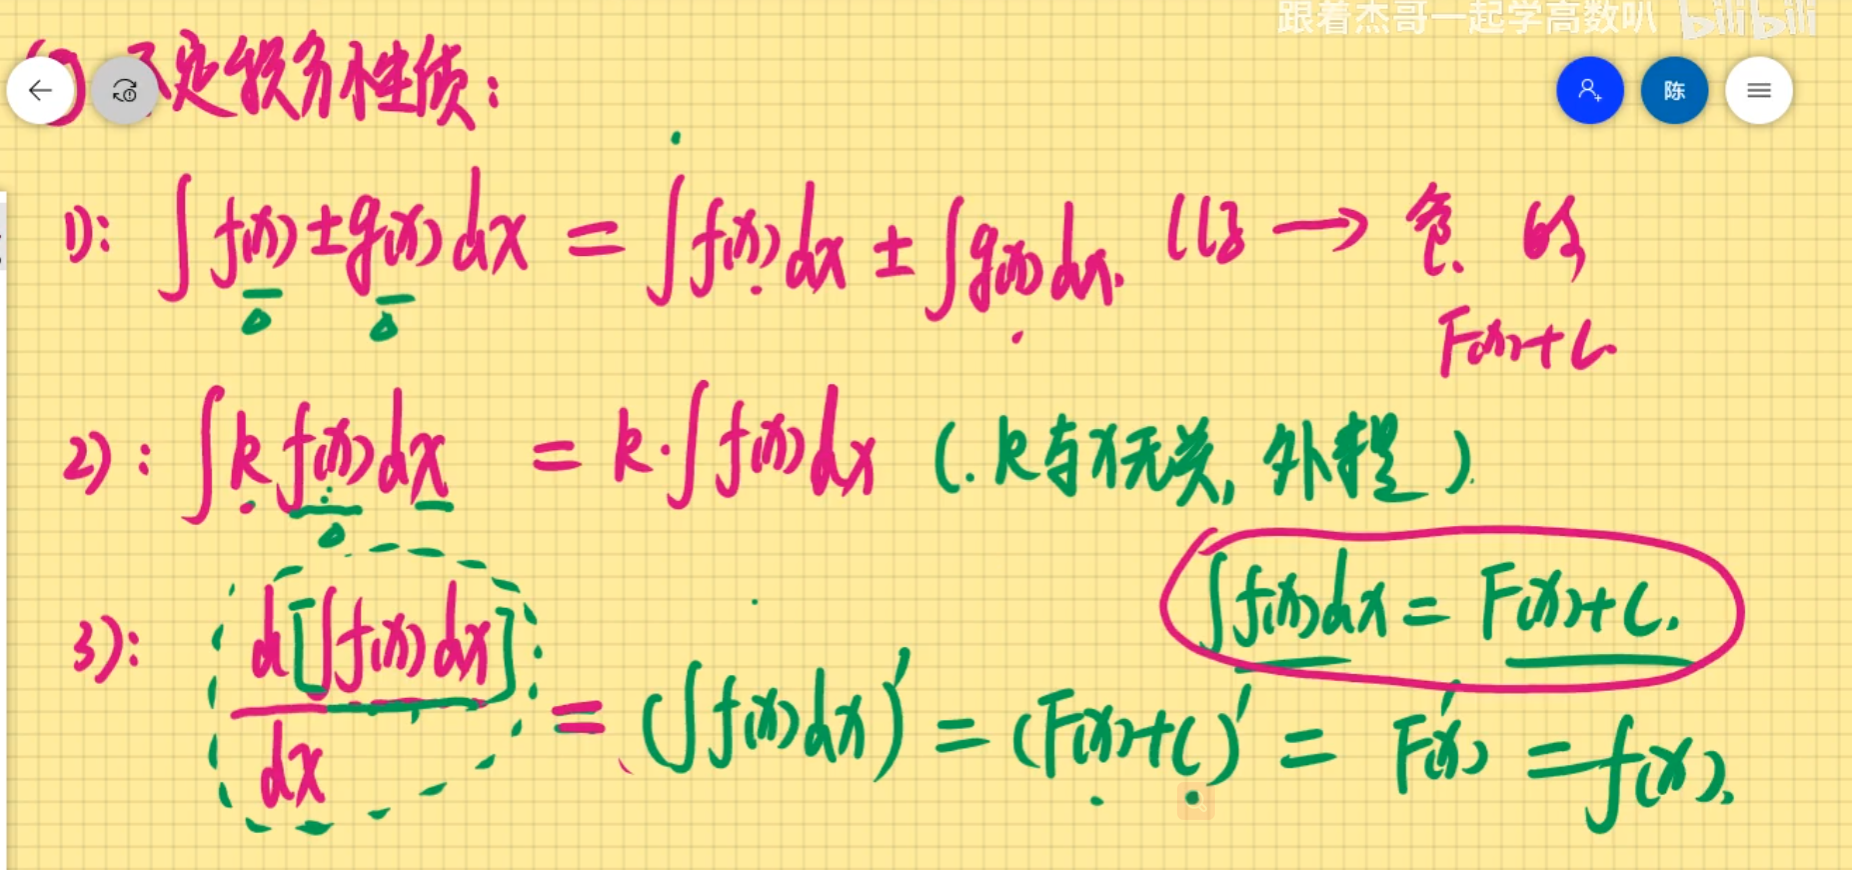 跟着杰哥一起学高数叭 bilibili
不定积分性质:
陈
1): ∫f(x)±g(x)dx = ∫f(x)dx ± ∫g(x)dx.
F(x)+C
2): ∫kf(x)dx = k·∫f(x)dx (.k与x无关, 外提)
∫f(x)dx = F(x)+C.
3): d[∫f(x)dx]/dx = (∫f(x)dx)' = (F(x)+C)' = F'(x) = f(x).